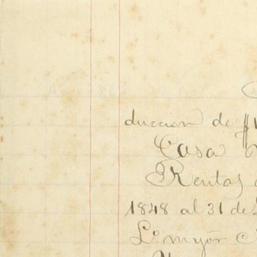 duccion de
Casa
Rentas
1848 al 31 de
L.º mayor